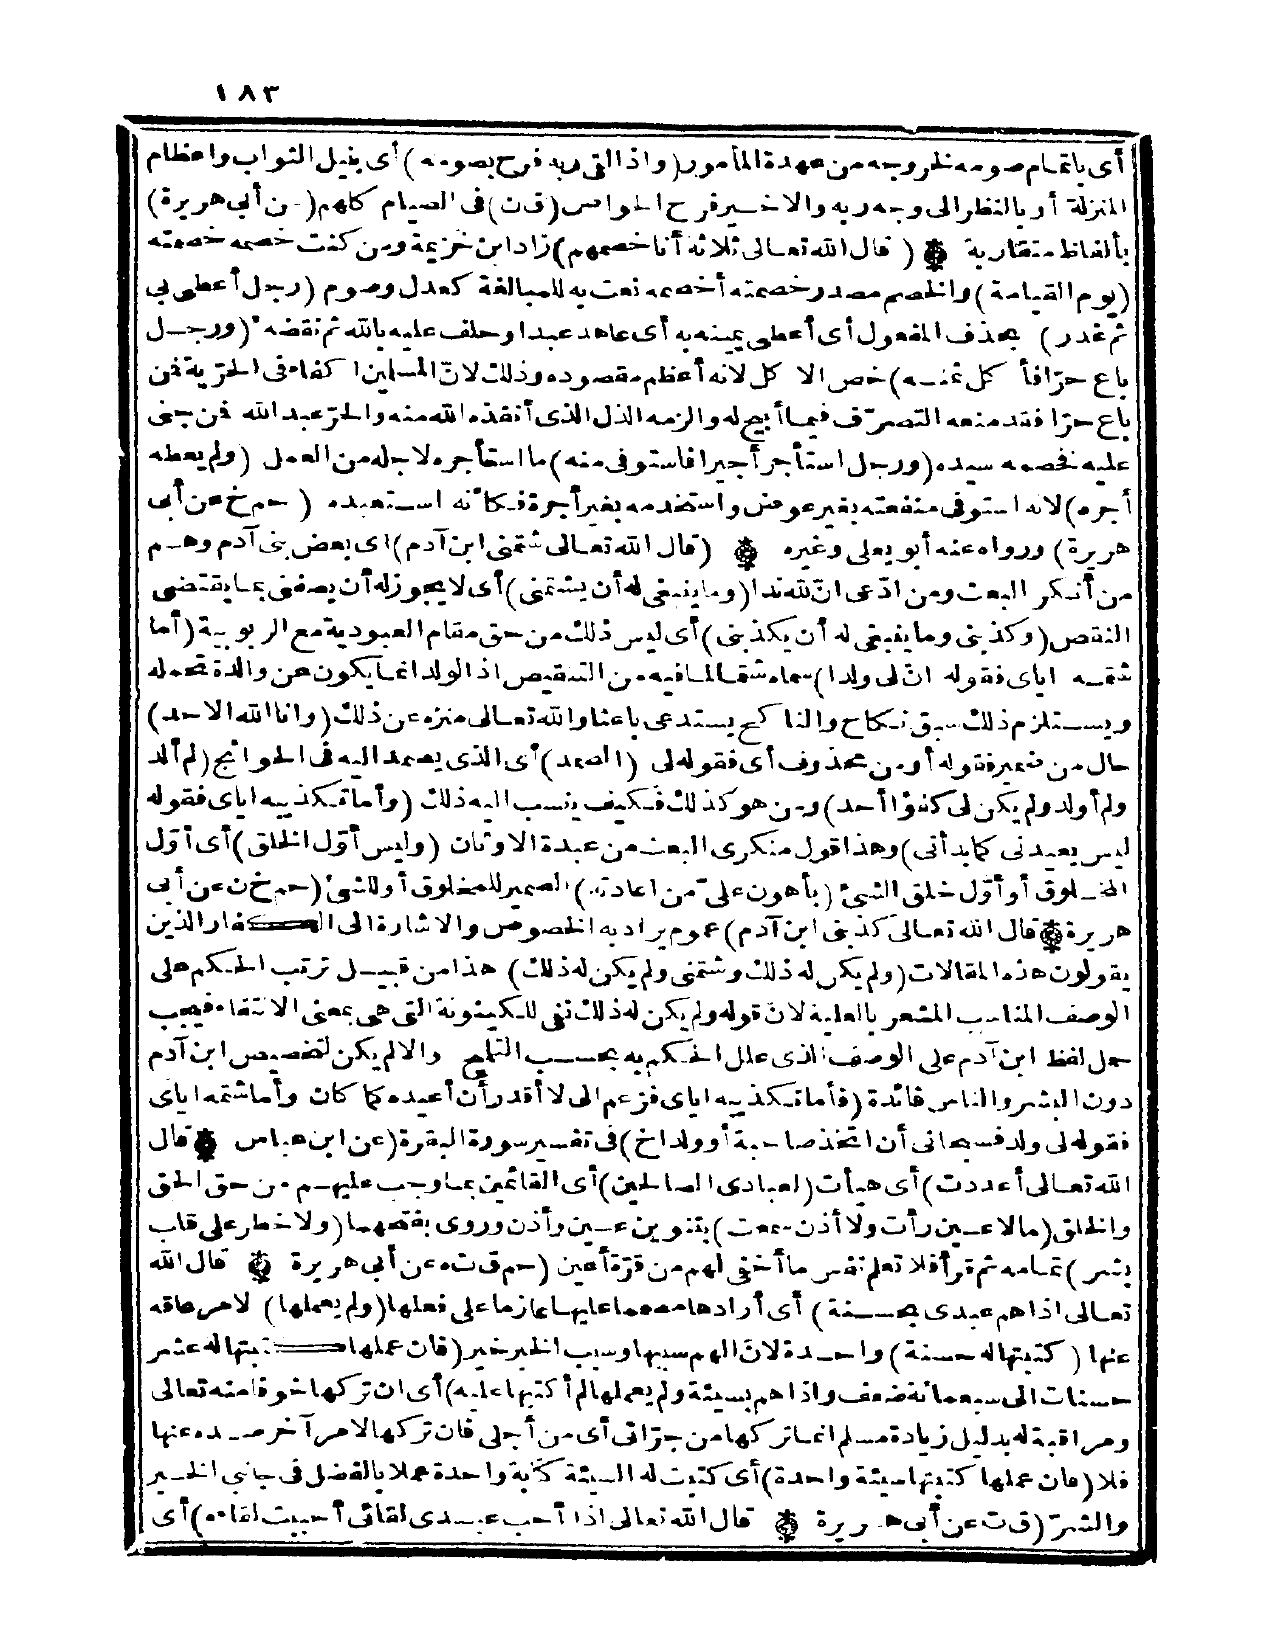 ١٨٣
أى باتمام صومه لخروجه من عهدة المأمور (واذا لقى ربه فرح بصومه) أى بنيل الثواب واعظام
المنزلة أو بالنظر الى وجه ربه والاخير فرح الخواص (ق ت) فى الصيام كلهم (عن أبى هريرة)
بألفاظ متقاربة (قال الله تعالى ثلاثة أنا خصمهم) زاد ابن خزيمة ومن كنت خصمه خصمته
(يوم القيامة) والخصم مصدر خصمته أخصمه نعت به للمبالغة كعدل وصوم (رجل أعطى بى
ثم غدر) بحذف المفعول أى أعطى يمينه به أى عاهد عبدا وحلف عليه بالله ثم نقضه (ورجل
باع حرّا فأكل ثمنه) خص الاكل لانه أعظم مقصوده وذلك لانّ المسلمين اكفاء فى الحرّية فمن
باع حرّا فقد منعه التصرّف فيما أبيح له والزمه الذل الذى أنقذه الله منه والحرّ عبد الله فمن جنى
عليه فخصمه سيده (ورجل استأجر أجيرا فاستوفى منه) ما استأجره لاجله من العمل (ولم يعطه
أجره) لانه استوفى منفعته بغير عوض واستخدمه بغير أجرة فكأنه استعبده (حم خ عن أبى
هريرة) ورواه عنه أبو يعلى وغيره (قال الله تعالى شتمنى ابن آدم) اى بعض بنى آدم وهم
من أنكر البعث ومن ادّعى انّ لله ندا (وما ينبغى له أن يشتمنى) أى لا يجوز له أن يصفنى بما يقتضى
النقص (وكذبنى وما ينبغى له أن يكذبنى) أى ليس ذلك من حق مقام العبودية مع الربوبية (أما
شتمه اياى فقوله انّ لى ولدا) سماه شتما لما فيه من التنقيص اذ الولد انما يكون عن والدة تحمله
ويستلزم ذلك سبق نكاح والناكح يستدعى باعثا والله تعالى منزه عن ذلك (وانا الله الاحد)
حال من ضمير فقوله أو من محذوف أى فقوله لى (الصمد) أى الذى يصمد اليه فى الحوائج (لم ألد
ولم أولد ولم يكن لى كفؤا أحد) ومن هو كذلك فكيف ينسب اليه ذلك (وأما تكذيبه اياى فقوله
ليس يعيدنى كما بدأنى) وهذا قول منكرى البعث من عبدة الاوثان (وليس أوّل الخلق) أى أوّل
المخلوق أو أوّل خلق الشئ (بأهون علىّ من اعادته) الضمير للمخلوق أو للشئ (حم خ ن عن أبى
هريرة قال الله تعالى كذبنى ابن آدم) عموم يراد به الخصوص والاشارة الى الكفار الذين
يقولون هذه المقالات (ولم يكن له ذلك وشتمنى ولم يكن له ذلك) هذا من قبيل ترتب الحكم على
الوصف المناسب المشعر بالعلية لانّ قوله ولم يكن له ذلك نفى للكينونة التى هى بمعنى الانتفاء فيجب
حمل لفظ ابن آدم على الوصف الذى علل الحكم به بحسب التلميح والا لم يكن لتخصيص ابن آدم
دون البشر والناس فائدة (فأما تكذيبه اياى فزعم الى لا أقدر أن أعيده كما كان وأما شتمه اياى
فقوله لى ولد فسبحانى أن اتخذ صاحبة أو ولدا خ) فى تفسير سورة البقرة (عن ابن عباس قال
الله تعالى أعددت) أى هيأت (لعبادى الصالحين) أى القائمين بما وجب عليهم من حق الحق
والخلق (ما لا عين رأت ولا أذن سمعت) بتنوين عين وأذن وروى بفتحهما (ولا خطر على قلب
بشر) تمامه ثم قرأ فلا تعلم نفس ما أخفى لهم من قرّة أعين (حم ق ت ه عن أبى هريرة قال الله
تعالى اذا هم عبدى بحسنة) أى أرادها مصمما عليها عازما على فعلها (ولم يعملها) لامر عاقه
عنها (كتبتها له حسنة) واحدة لانّ الهم سببها وسبب الخير خير (فان عملها كتبتها له عشر
حسنات الى سبعمائة ضعف واذا هم بسيئة ولم يعملها لم أكتبها عليه) أى ان تركها خوفا منه تعالى
ومراقبة له بدليل زيادة مسلم انما تركها من جرّائى أى من أجلى فان تركها لامر آخر صده عنها
فلا (فان عملها كتبتها سيئة واحدة) أى كتبت له السيئة كتابة واحدة عملا بالفضل فى جانبى الخير
والشرّ (ق ت عن أبى هريرة قال الله تعالى اذا أحب عبدى لقائى أحببت لقاءه) أى